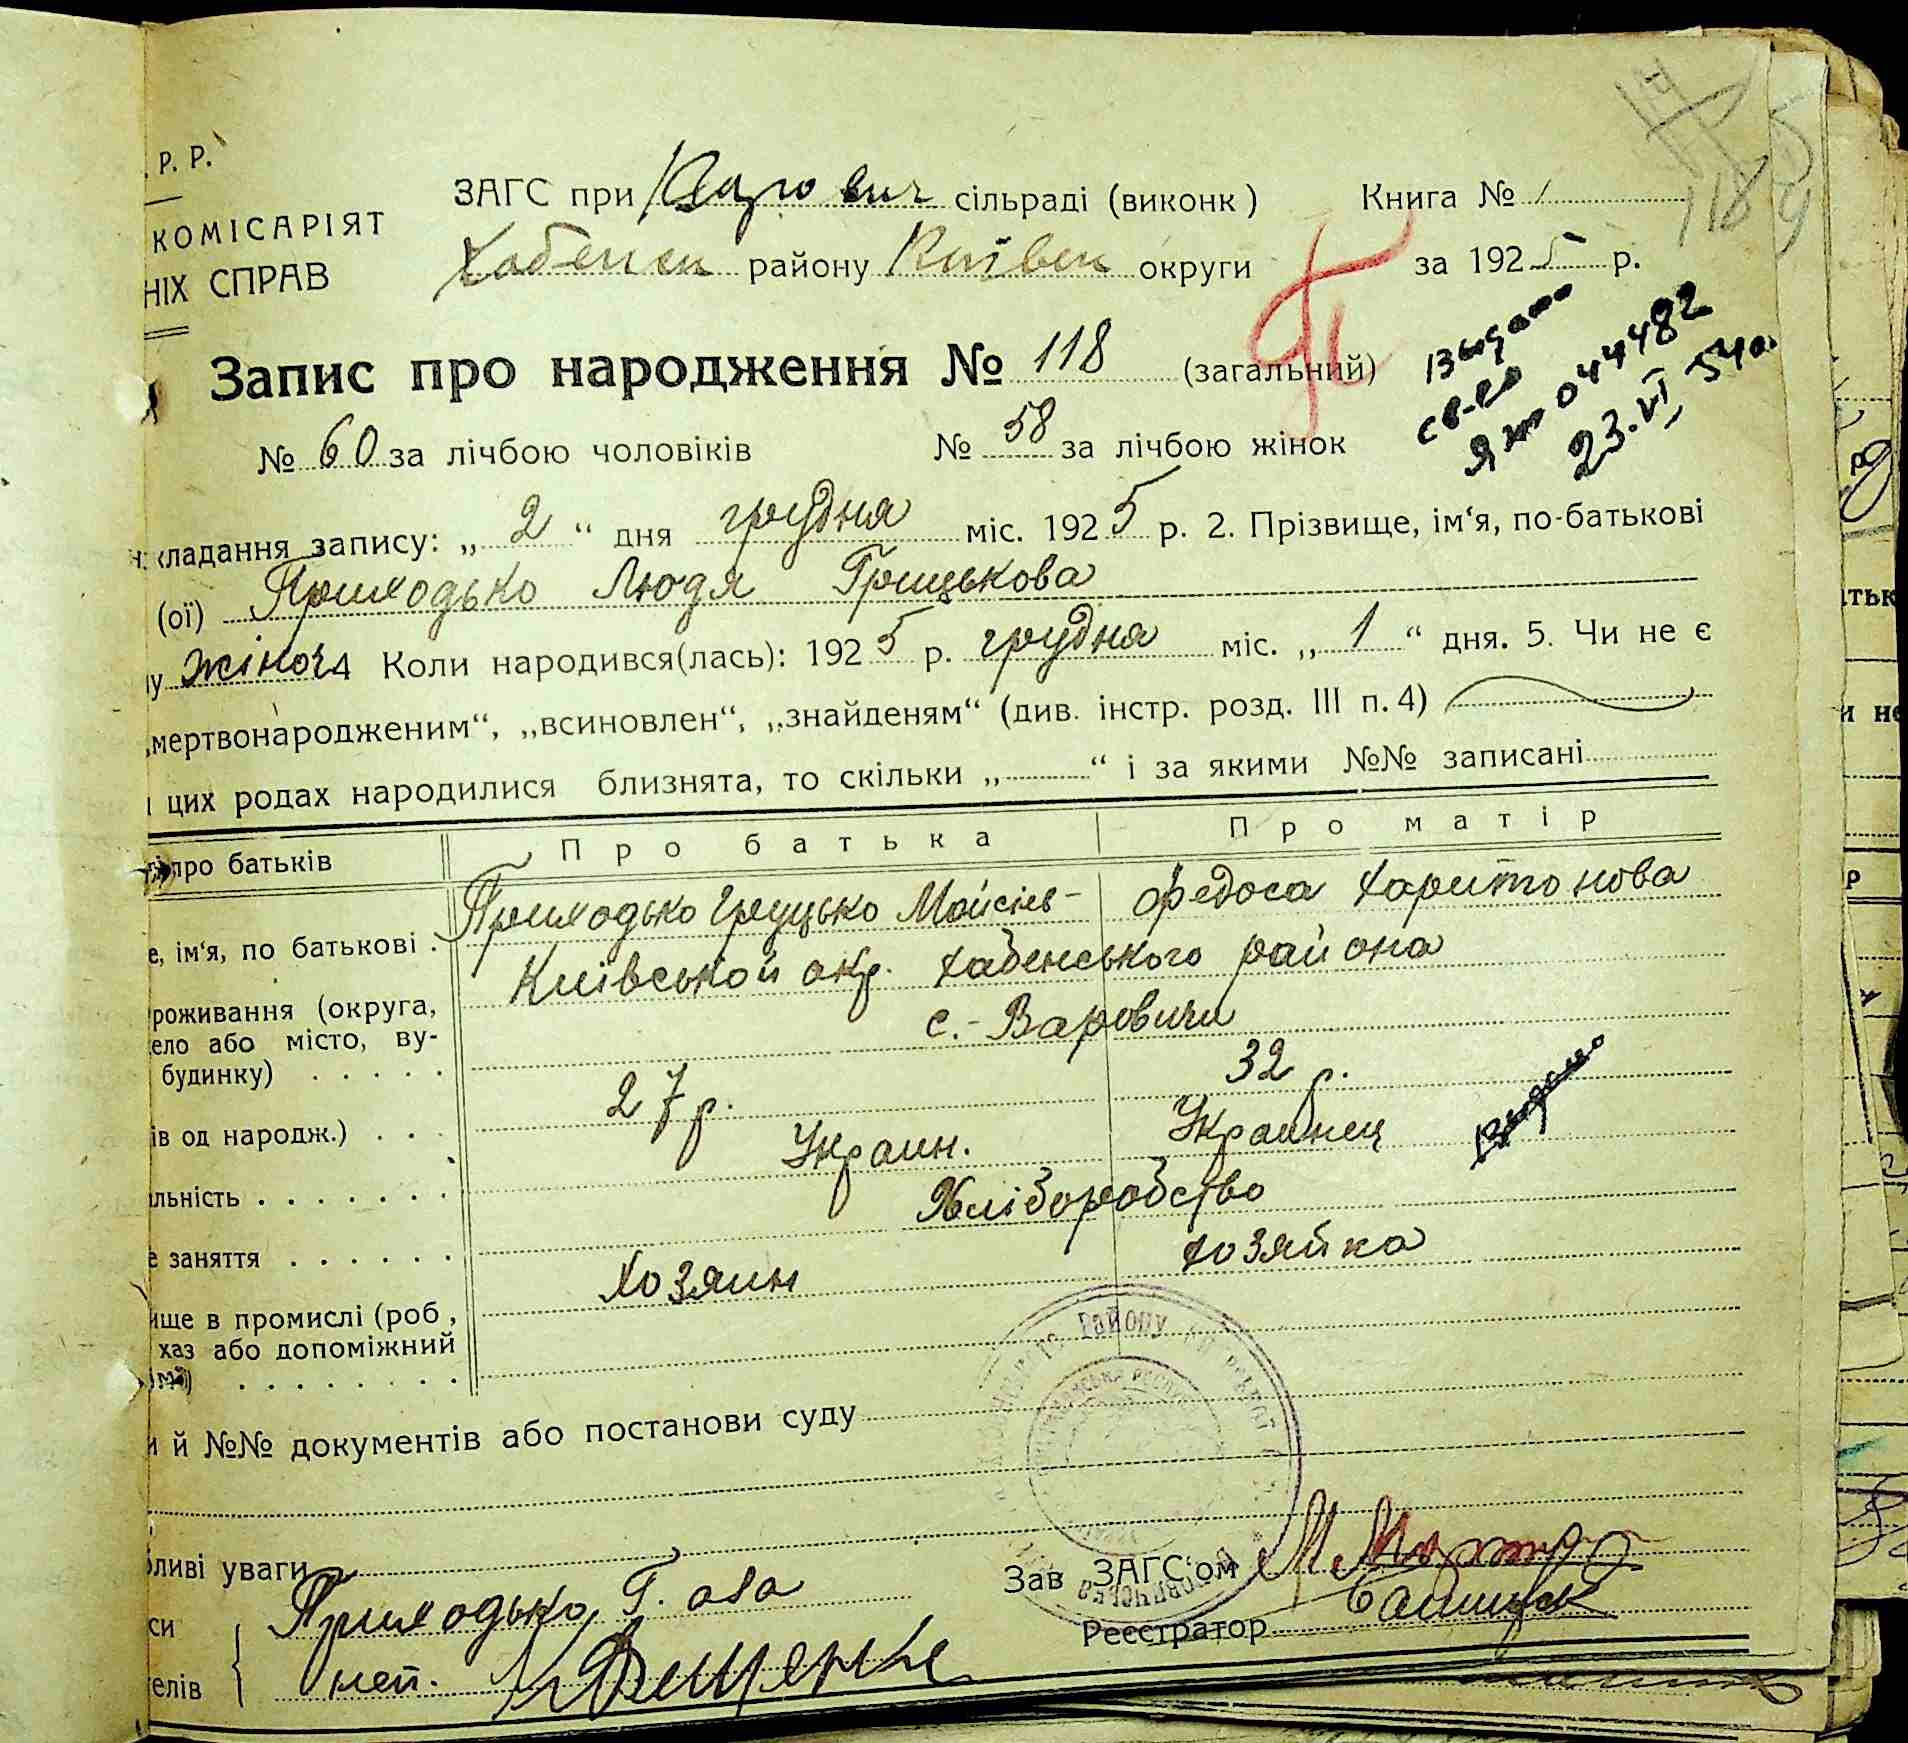 . Р. Р.
ЗАГС при Варович сільраді (виконк) Книга № 1
КОМІСАРІЯТ
Хабенськ району Київськ округи за 1925 р.
НІХ СПРАВ
Запис про народження № 118 (загальний)
видано
св-во
ЯЖ 044482
23.VI 54
№ 60 за лічбою чоловіків № 58 за лічбою жінок
складання запису: „ 2 “ дня грудня міс. 1925 р. 2. Прізвище, ім‘я, по-батькові
(ої) Приходько Людя Грицькова
жіноч 4 Коли народився(лась): 1925 р. грудня міс. „ 1 “ дня. 5. Чи не є
„мертвонародженим“, „всиновлен“, „знайденям“ (див. інстр. розд. III п. 4)
цих родах народилися близнята, то скільки „ “ і за якими №№ записані
про батьків Про батька Про матір
е, ім‘я, по батькові . Приходько Грицько Мойсієв- Федоса Харитонова
роживання (округа, Київськой окр. Хабенського района
ело або місто, ву- с.- Варовичи
будинку) . . . . .
ів од народж.) . . . 27 р. 32 р.
альність . . . . . . . Украин. Украинец
видано
е заняття . . . . . . Хліборобство
ище в промислі (роб , Хозяин хозяйка
хаз або допоміжний
й №№ документів або постанови суду
бливі уваги
Зав ЗАГС‘ом
си Приходько, Г. або
Реєстратор
елів неп.